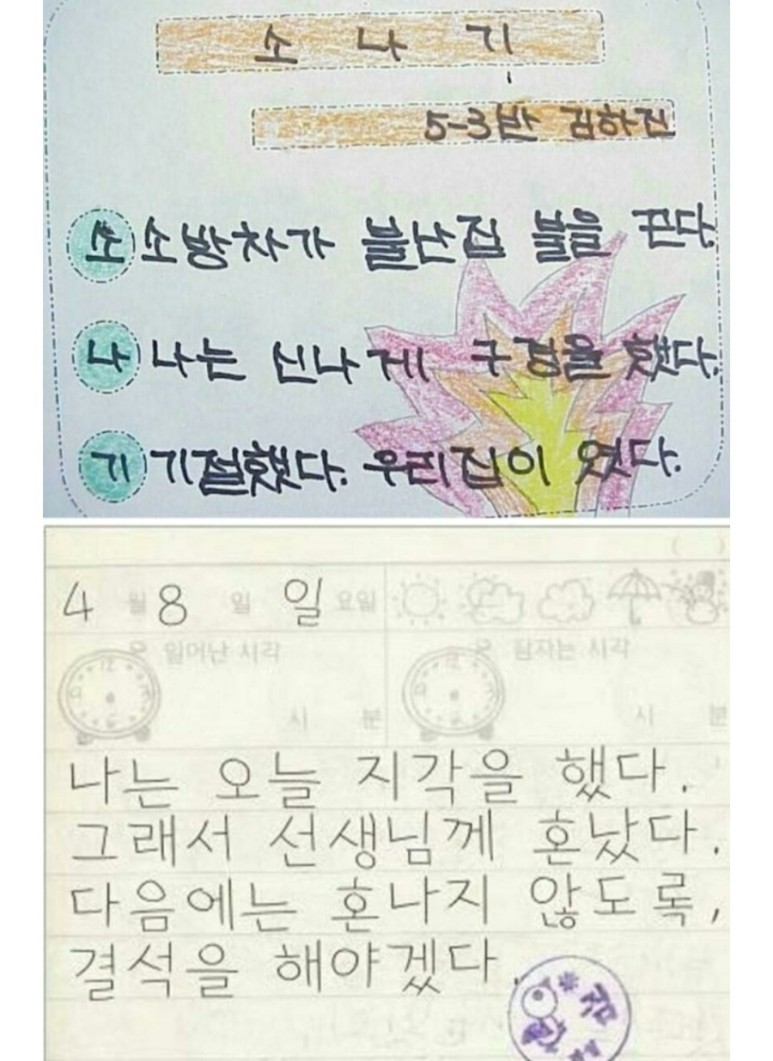 소 나 기
5-3반 김하진
소 소방차가 불난집 불을 끈다.
나 나는 신나게 구경을 했다.
기 기절했다. 우리집이 였다.
( )
4 월 8 일 일 요일
일어난 시각 잠자는 시각
시 분 시 분
나는 오늘 지각을 했다.
그래서 선생님께 혼났다.
다음에는 혼나지 않도록,
결석을 해야겠다.